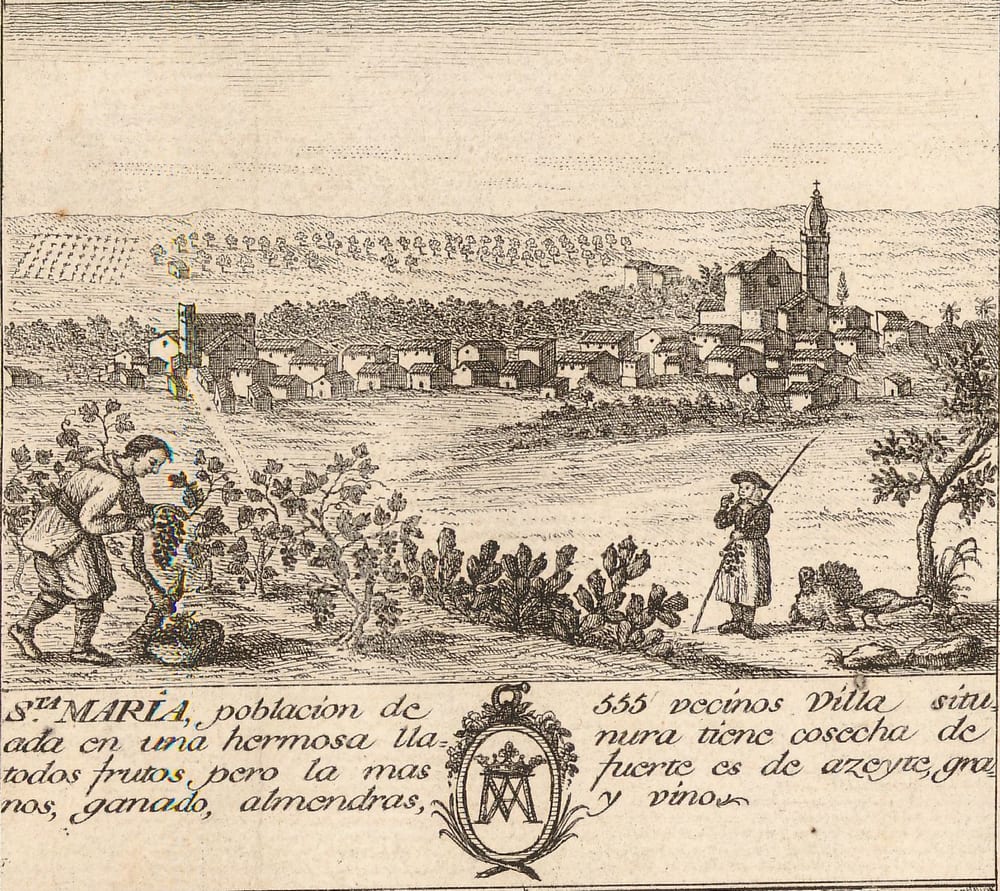 S.TA MARIA, poblacion de 555 vecinos Villa situ-
ada en una hermosa lla= nura tiene cosecha de
todos frutos, pero la mas fuerte es de azeyte, gra-
nos, ganado, almendras, y vino